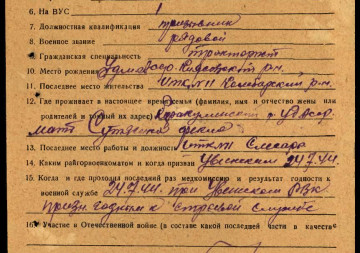 6. На ВУС 1
7. Должностная квалификация призывник
8. Военное звание рядовой
9. Гражданская специальность тракторист
10. Место рождения р-н.
11. Последнее место жительства р-н.
12. Где проживает в настоящее время семья (фамилия, имя и отчество жены или
родителей и точный их адрес)
мать
13. Последнее место работы и должность слесарь
14. Каким райгорвоенкоматом и когда призван Увинским 24.7.44.
15. Когда и где проходил последний раз медкомиссию и результат годности к
военной службе 24.7.44. при Увинском РВК
призн. годным к строевой службе
16. Участие в Отечественной войне (в составе какой последней части в качестве